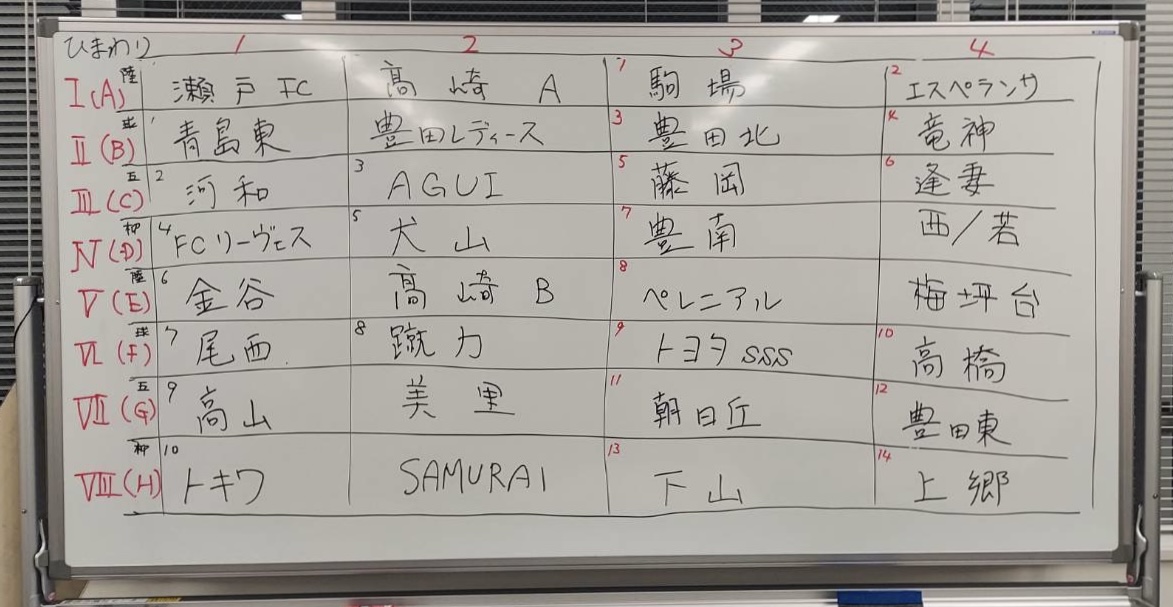 ひまわり 1 2 3 4
I(A) 陸 瀬戸FC 高崎A 1 駒場 2 エスペランサ
II(B) 球 1 青島東 豊田レディース 3 豊田北 4 竜神
III(C) 五 2 河和 3 AGUI 5 藤岡 6 逢妻
IV(D) 柳 4 FCリーヴェス 5 犬山 7 豊南 西/若
V(E) 陸 6 金谷 高崎B 8 ペレニアル 梅坪台
VI(F) 球 7 尾西 8 蹴力 9 トヨタSSS 10 高橋
VII(G) 五 9 高山 美里 11 朝日丘 12 豊田東
VIII(H) 柳 10 トキワ SAMURAI 13 下山 14 上郷